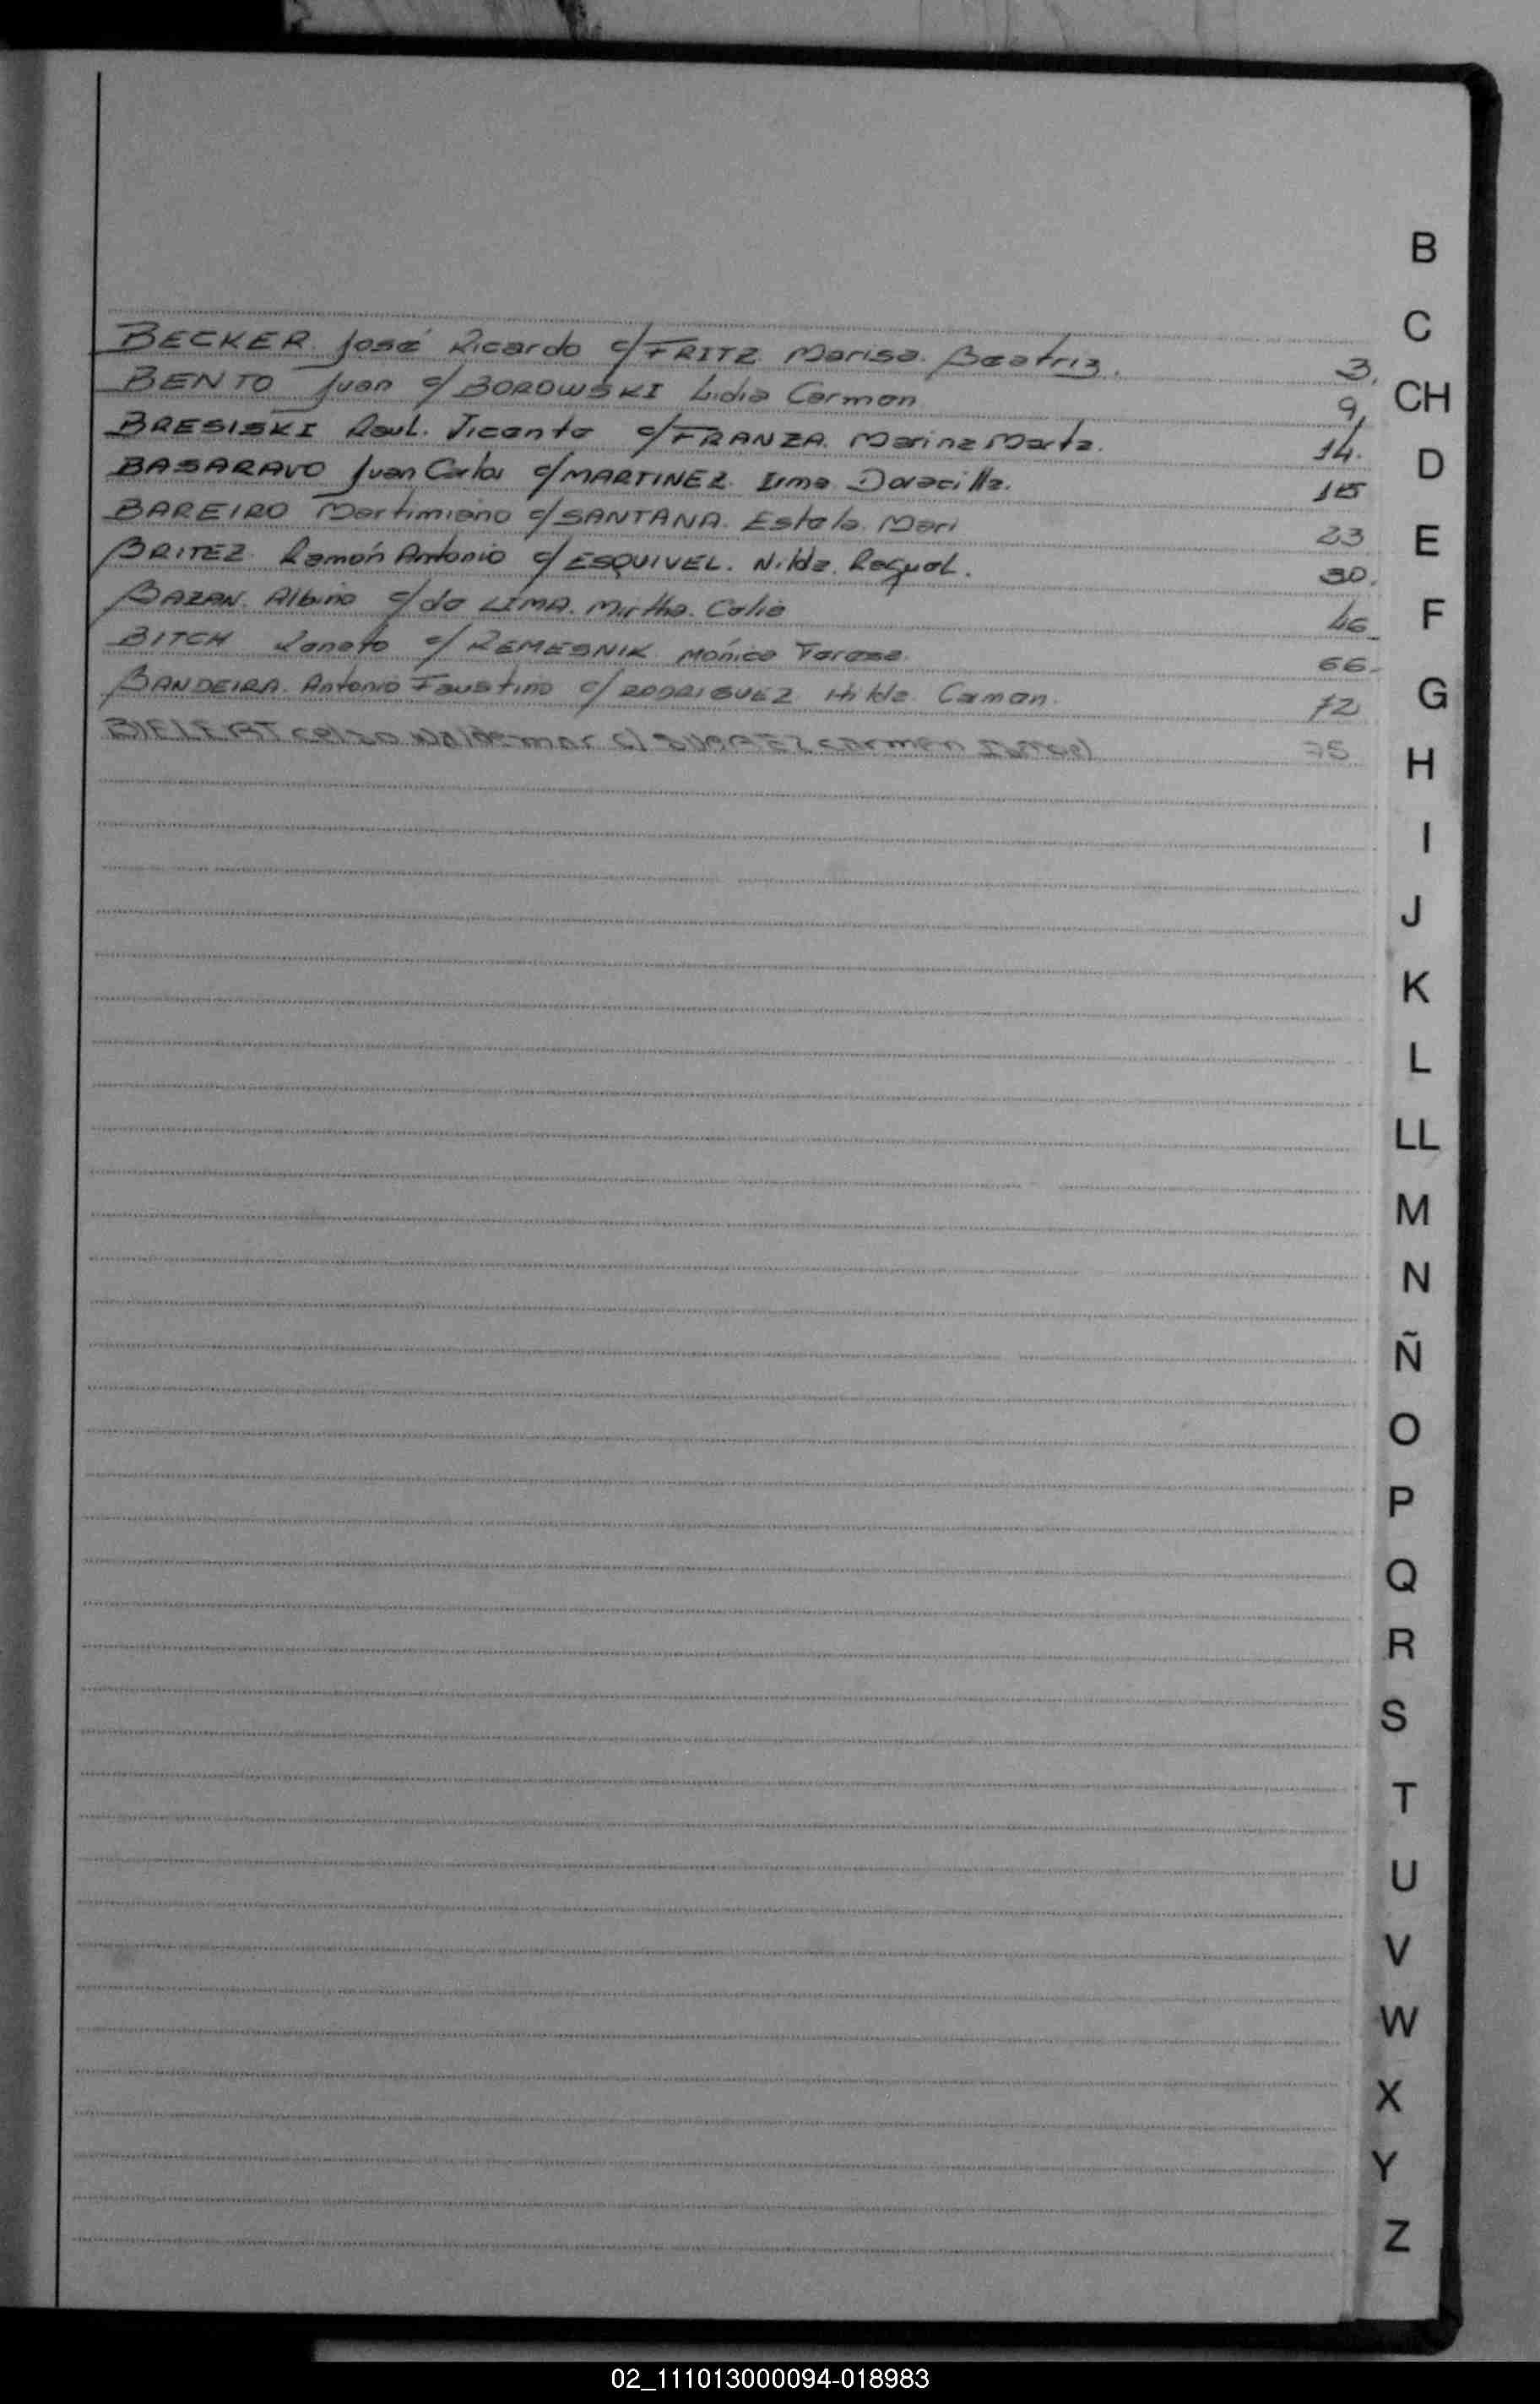 BECKER. José Ricardo c/ FRITZ. Marisa. Beatriz. 3.
BENTO Juan c/ BOROWSKI Lidia Carmen 9.
BRESISKI Raul. Vicente c/ FRANZA. Marina Marta. 14.
BASARAVO Juan Carlos c/ MARTINEZ. Irma Doracilla. 15
BAREIRO Martimiano c/ SANTANA. Estela. Mari 23
BRITEZ. Ramón Antonio c/ ESQUIVEL. Nilda. Raquel. 30.
BAZAN. Albino c/ da LIMA. Mirtha. Celia 46_
BITCH Renato c/ REMESNIK Mónica Teresa. 66-
BANDEIRA. Antonio Faustino c/ RODRIGUEZ Hilda Carmen. 72
BIELERT celso Waldemar c/ SUAREZ carmen Isabel 75
B
C
CH
D
E
F
G
H
I
J
K
L
LL
M
N
Ñ
O
P
Q
R
S
T
U
V
W
X
Y
Z
02_111013000094-018983